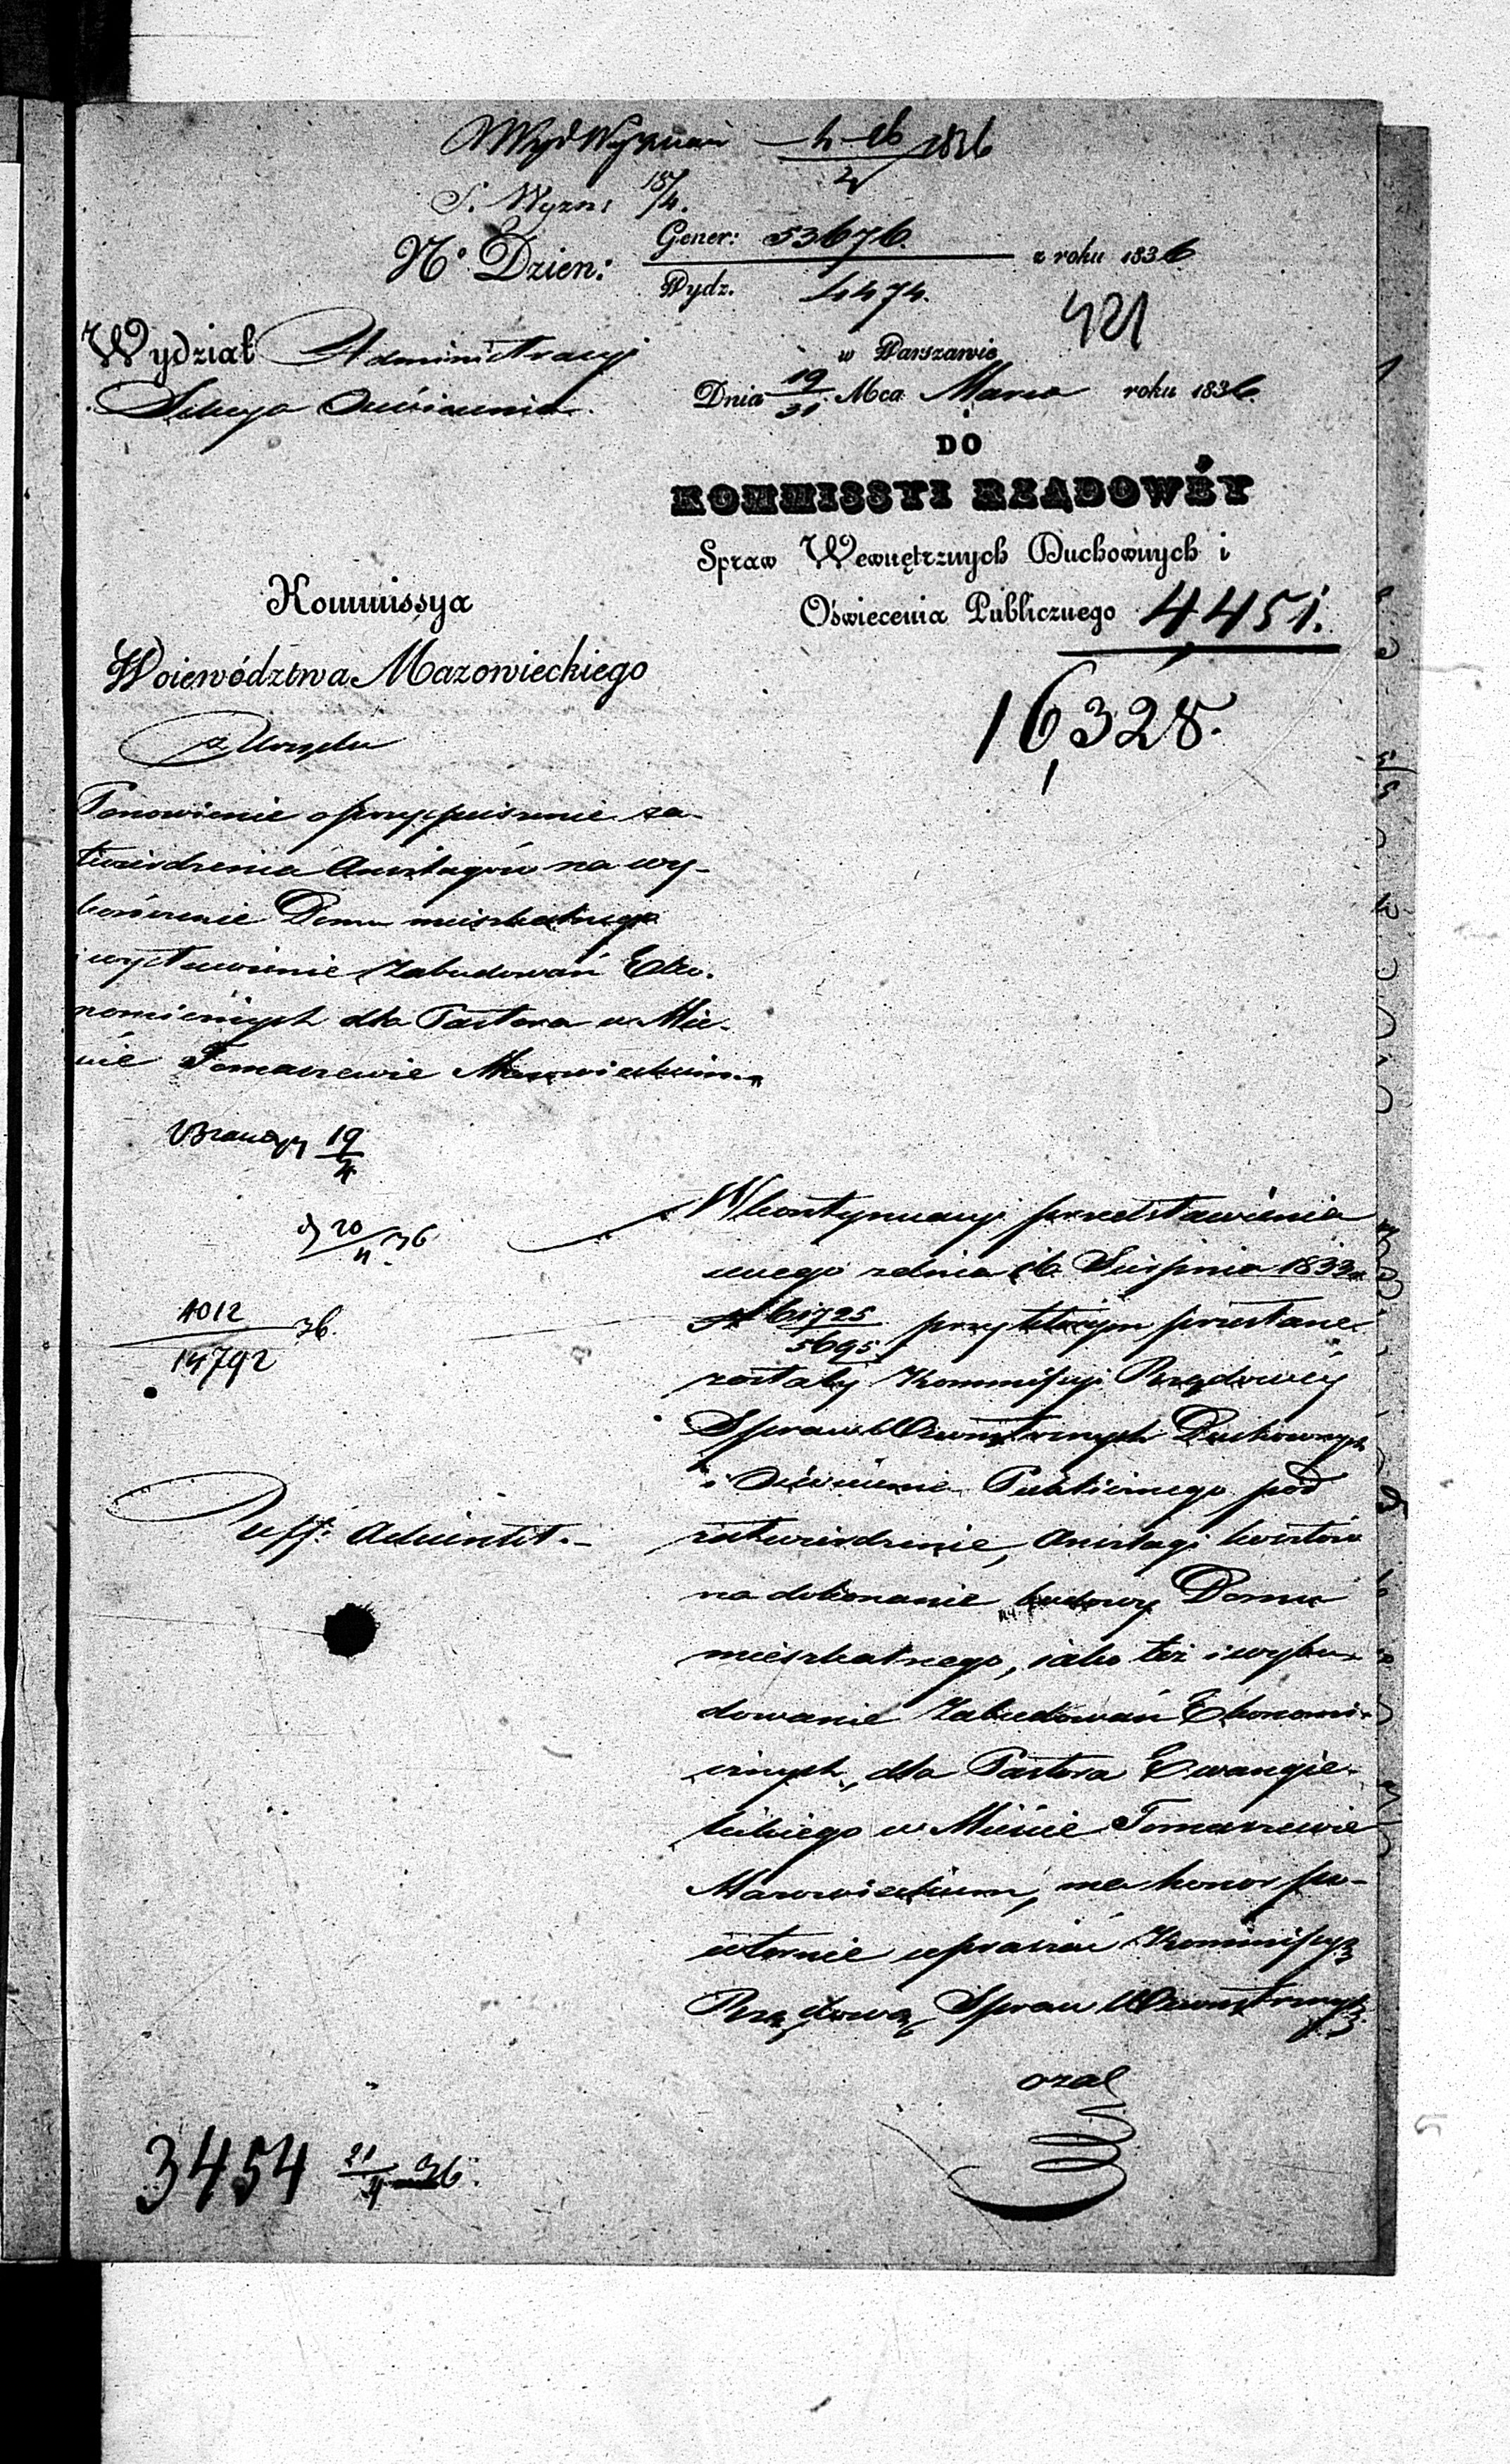 1836
S. Wyzn: 18/4.
Gener: 53676.
N° Dzien: z roku 1836
Wydz. 4474.
421
Wydział Administracyi
Sekcya Oświecenia
w Warszawie
Dnia 19/31 Mca Marca roku 1836.
DO
KOMMISSYI RZĄDOWÉY
Spraw Wewnętrznych Duchownych i
Oświecenia Publicznego 4451.
16,328.
Kommissya
Woiewództwa Mazowieckiego
z Urzędu
Ponowienie o przyspieszenie za-
twierdzenia Anszlagów na wy-
kończenie Domu mieszkalnego
i wystawienie Zabudowań Eko-
nomicznych dla Pastora w Mie-
ście Tomaszewie Mazowieckim.
19/4
20/4 36
4012/14792 36.
W kontynuacyi przedstawienia
swego z dnia 16 Sierpnia 1833 r.
N 61725/5695 przy którym przesłane
zostały Kommissyi Rządowéy
Spraw Wewnętrznych Duchownych
i Oświecenia Publicznego pod
zatwierdzenie, Anszlagi kosztów
na dokonanie budowy Domu
mieszkalnego, iako też i wybu-
dowanie Zabudowań Ekonomi-
cznych, dla Pastora Ewangie-
lickiego w Mieście Tomaszewie
Mazowieckim, ma honor po-
wtornie upraszać Kommissyą
Rządową Spraw Wewnętrznych
oraz
3454 21/4 36.